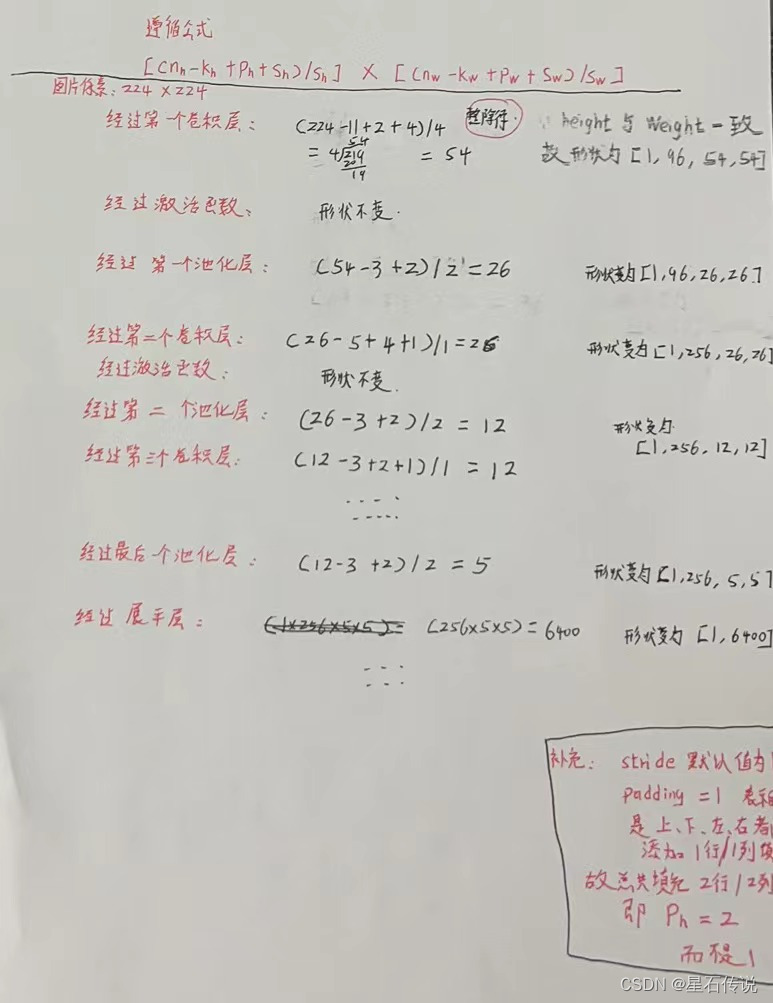 遵循公式
[(nh-kh+Ph+Sh)/Sh] × [(nw-kw+Pw+Sw)/Sw]
图片像素: 224 × 224
经过第一个卷积层: (224-11+2+4)/4 整除行. height 与 Weight 一致
= 4 54 219 20 19 = 54 故 形状为 [1, 96, 54, 54]
经过激活函数: 形状不变.
经过 第一个池化层: (54-3+2)/2=26 形状变为 [1,96,26,26]
经过第二个卷积层: (26-5+4+1)/1=26 形状变为 [1,256,26,26]
经过激活函数: 形状不变.
经过第二个池化层: (26-3+2)/2 = 12 形状变为
[1,256,12,12]
经过第三个卷积层: (12-3+2+1)/1 = 12
......
经过最后一个池化层: (12-3+2)/2 = 5 形状变为 [1,256,5,5]
经过 展平层: (1×256×5×5)= (256×5×5)=6400 形状变为 [1,6400]
......
补充: stride 默认值为1
padding = 1
是上、下、左、右都
添加1行/1列
故总共填充2行/2列
即 Ph = 2
而不是1
CSDN @星石传说